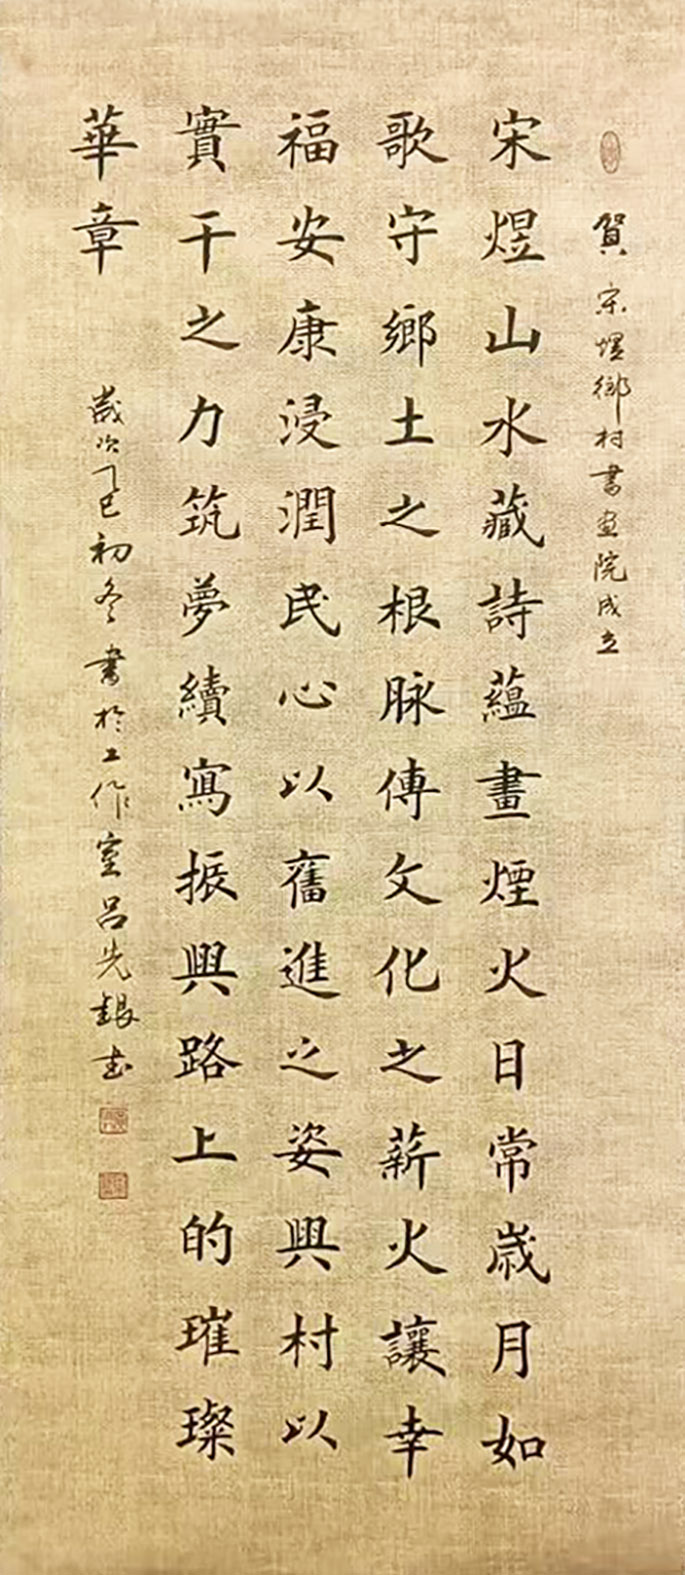 賀宋煜鄉村書畫院成立
宋煜山水藏詩蘊畫煙火日常歲月如
歌守鄉土之根脉傳文化之薪火讓幸
福安康浸潤民心以奮進之姿興村以
實干之力筑夢續寫振興路上的璀璨
華章
歲次乙巳初冬書於工作室呂先銀書